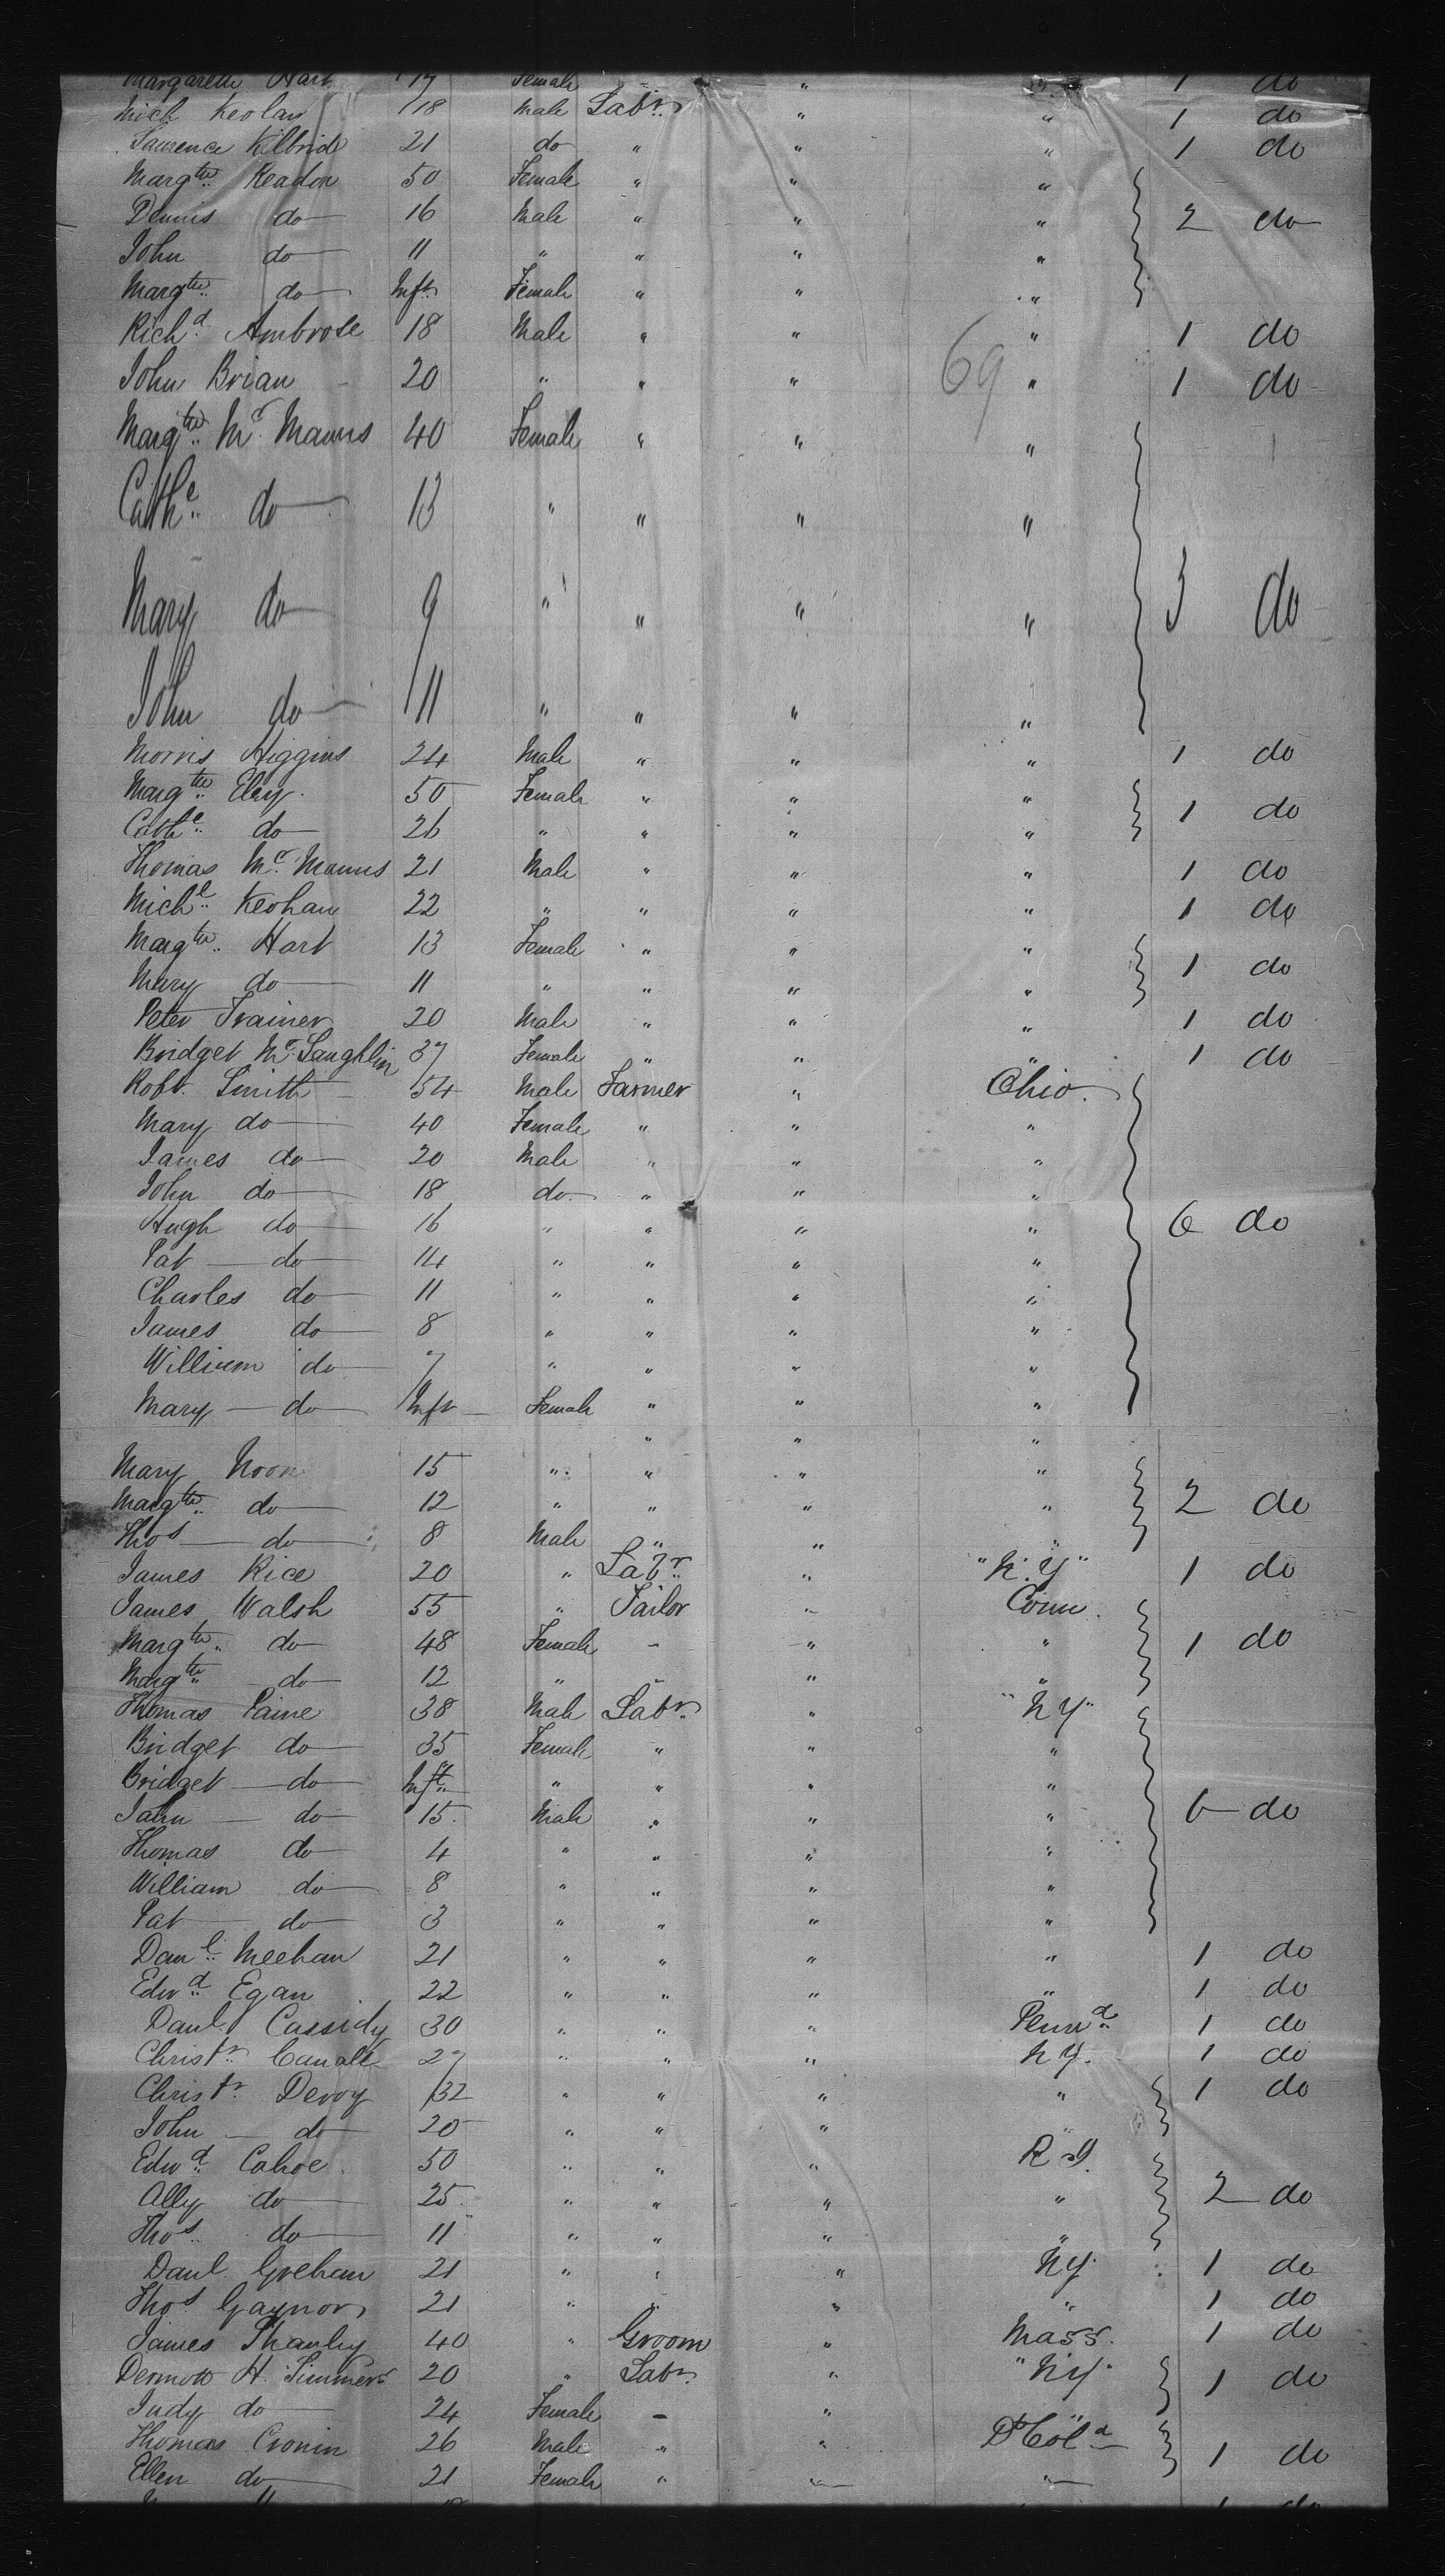 Margarette Hart 17 Female " " " 1 do
Mich Keolan 18 Male Labr. " " 1 do
Laurence Kilbride 21 do " " " 1 do
Margtte Keadon 50 Female " " "
Dennis do 16 Male " " " 2 do
John do 11 " " " "
Margtte do Inft Female " " "
Richd Ambrose 18 Male " " " 1 do
John Brian 20 " " " 69 " 1 do
Margtte Mc Manus 40 Female " " "
Cathe do 13 " " " "
Mary do 9 " " " " 3 do
John do 11 " " " "
Morris Higgins 24 Male " " " 1 do
Margtte Eley 50 Female " " "
Cathe do 26 " " " " 1 do
Thomas Mc Manus 21 Male " " " 1 do
Michl Keohan 22 " " " " 1 do
Margtte Hart 13 Female " " "
Mary do 11 " " " " 1 do
Peter Trainer 20 Male " " " 1 do
Bridget Mc Laughlin 37 Female " " " 1 do
Robt. Smith 54 Male Farmer " Ohio.
Mary do 40 Female " " "
James do 20 Male " " "
John do 18 do " " "
Hugh do 16 " " " " 6 do
Pat do 14 " " " "
Charles do 11 " " " "
James do 8 " " " "
William do 7 " " " "
Mary do Inft Female " " "
" " "
Mary Noon 15 " " " "
Margtte do 12 " " " " 2 do
Thos do 8 Male " " "
James Rice 20 " Labr " "N.Y" 1 do
James Walsh 55 " Tailor " Conn.
Margtte do 48 Female - " " 1 do
Margtte do 12 " " " "
Thomas Paine 38 Male Labr " "NY"
Bridget do 35 Female " " "
Bridget do Inft " " " "
John do 15 Male " " " 6 do
Thomas do 4 " " " "
William do 8 " " " "
Pat do 3 " " " "
Danl Meehan 21 " " " " 1 do
Edwd Egan 22 " " " " 1 do
Danl. Cassidy 30 " " " Pennd 1 do
Christr 27 " " " NY. 1 do
Christr Devoy 32 " " " " 1 do
John do 20 " " " "
Edwd Cahoe 50 " " " R I.
Ally do 25 " " " " 2 do
Thos do 11 " " " "
Danl. Grehan 21 " " " NY. 1 do
Thos Gaynor 21 " " " " 1 do
James Shanley 40 " Groom " Mass. 1 do
Dermott H. 20 " Labr " "NY" 1 do
Judy do 24 Female - " "
Thomas Cronin 26 Male " " 1 do
Ellen do 21 Female " " "